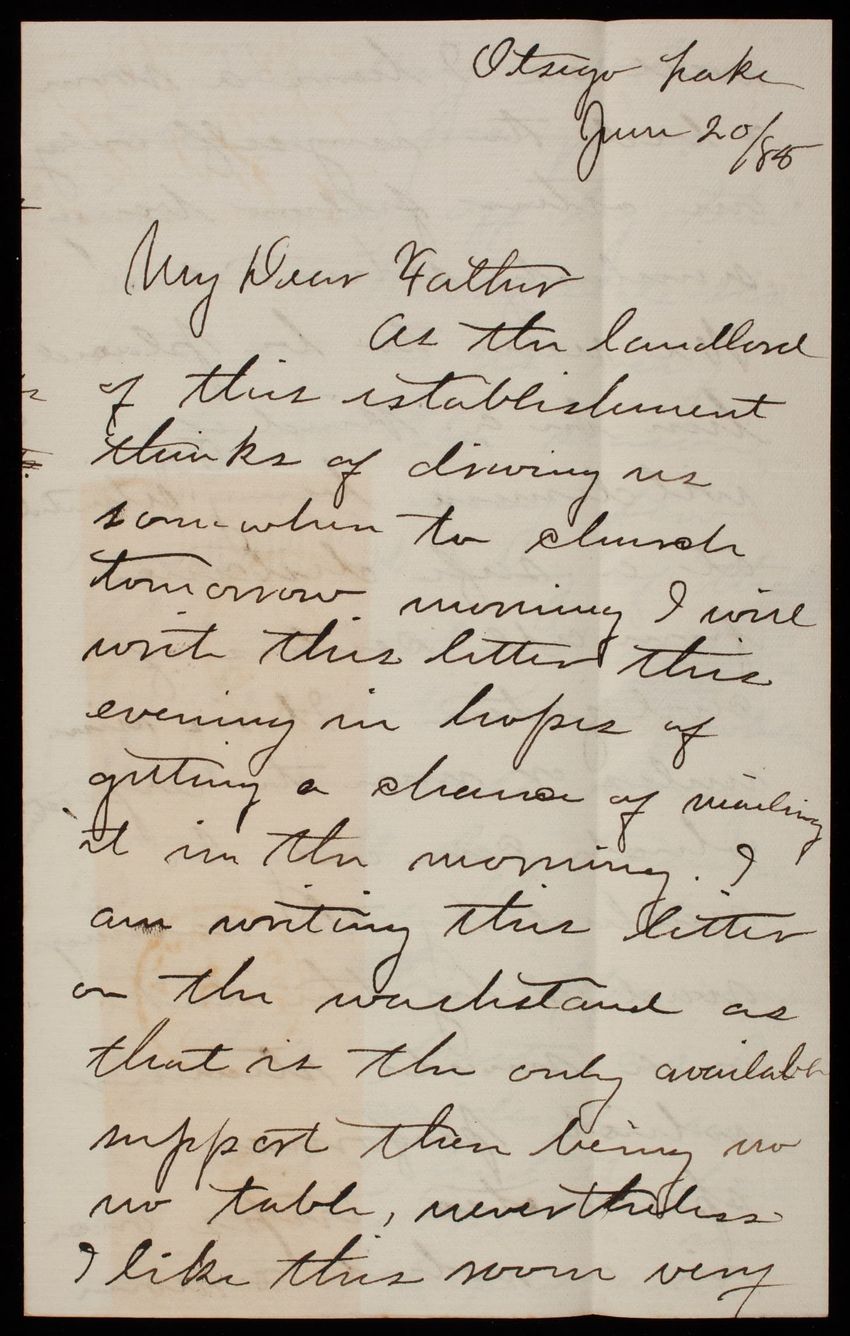 Otsego Lake
June 20/85
My Dear Father
As the landlord
of this establishment
thinks of driving us
somewhere to church
tomorrow morning I will
write this letter this
evening in hopes of
getting a chance of mailing
it in the morning. I
am writing this letter
on the washstand as
that is the only available
support there being no
no table, nevertheless
I like this room very